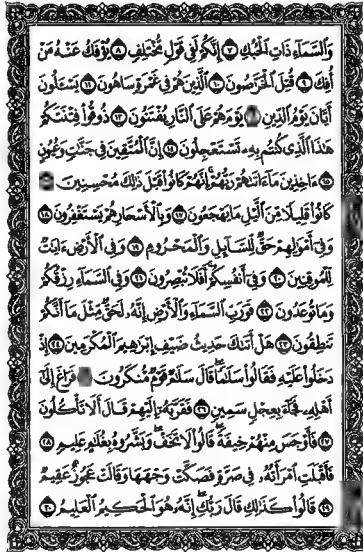 وَالسَّمَآءِ ذَاتِ ٱلْحُبُكِ ٧ إِنَّكُمْ لَفِى قَوْلٍ مُّخْتَلِفٍ ٨ يُؤْفَكُ عَنْهُ مَنْ
أُفِكَ ٩ قُتِلَ ٱلْخَرَّٰصُونَ ١٠ ٱلَّذِينَ هُمْ فِى غَمْرَةٍ سَاهُونَ ١١ يَسْـَٔلُونَ
أَيَّانَ يَوْمُ ٱلدِّينِ يَوْمَ هُمْ عَلَى ٱلنَّارِ يُفْتَنُونَ ١٣ ذُوقُوا۟ فِتْنَتَكُمْ
هَٰذَا ٱلَّذِى كُنتُم بِهِۦ تَسْتَعْجِلُونَ ١٤ إِنَّ ٱلْمُتَّقِينَ فِى جَنَّٰتٍ وَعُيُونٍ
١٥ ءَاخِذِينَ مَآ ءَاتَىٰهُمْ رَبُّهُمْ إِنَّهُمْ كَانُوا۟ قَبْلَ ذَٰلِكَ مُحْسِنِينَ
كَانُوا۟ قَلِيلًا مِّنَ ٱلَّيْلِ مَا يَهْجَعُونَ ١٧ وَبِٱلْأَسْحَارِ هُمْ يَسْتَغْفِرُونَ ١٨
وَفِىٓ أَمْوَٰلِهِمْ حَقٌّ لِّلسَّآئِلِ وَٱلْمَحْرُومِ ١٩ وَفِى ٱلْأَرْضِ ءَايَٰتٌ
لِّلْمُوقِنِينَ ٢٠ وَفِىٓ أَنفُسِكُمْ أَفَلَا تُبْصِرُونَ ٢١ وَفِى ٱلسَّمَآءِ رِزْقُكُمْ
وَمَا تُوعَدُونَ ٢٢ فَوَرَبِّ ٱلسَّمَآءِ وَٱلْأَرْضِ إِنَّهُۥ لَحَقٌّ مِّثْلَ مَآ أَنَّكُمْ
تَنطِقُونَ ٢٣ هَلْ أَتَىٰكَ حَدِيثُ ضَيْفِ إِبْرَٰهِيمَ ٱلْمُكْرَمِينَ ٢٤ إِذْ
دَخَلُوا۟ عَلَيْهِ فَقَالُوا۟ سَلَٰمًا قَالَ سَلَٰمٌ قَوْمٌ مُّنكَرُونَ فَرَاغَ إِلَىٰٓ
أَهْلِهِۦ فَجَآءَ بِعِجْلٍ سَمِينٍ ٢٦ فَقَرَّبَهُۥٓ إِلَيْهِمْ قَالَ أَلَا تَأْكُلُونَ
٢٧ فَأَوْجَسَ مِنْهُمْ خِيفَةً قَالُوا۟ لَا تَخَفْ وَبَشَّرُوهُ بِغُلَٰمٍ عَلِيمٍ ٢٨
فَأَقْبَلَتِ ٱمْرَأَتُهُۥ فِى صَرَّةٍ فَصَكَّتْ وَجْهَهَا وَقَالَتْ عَجُوزٌ عَقِيمٌ
٢٩ قَالُوا۟ كَذَٰلِكِ قَالَ رَبُّكِ إِنَّهُۥ هُوَ ٱلْحَكِيمُ ٱلْعَلِيمُ ٣٠